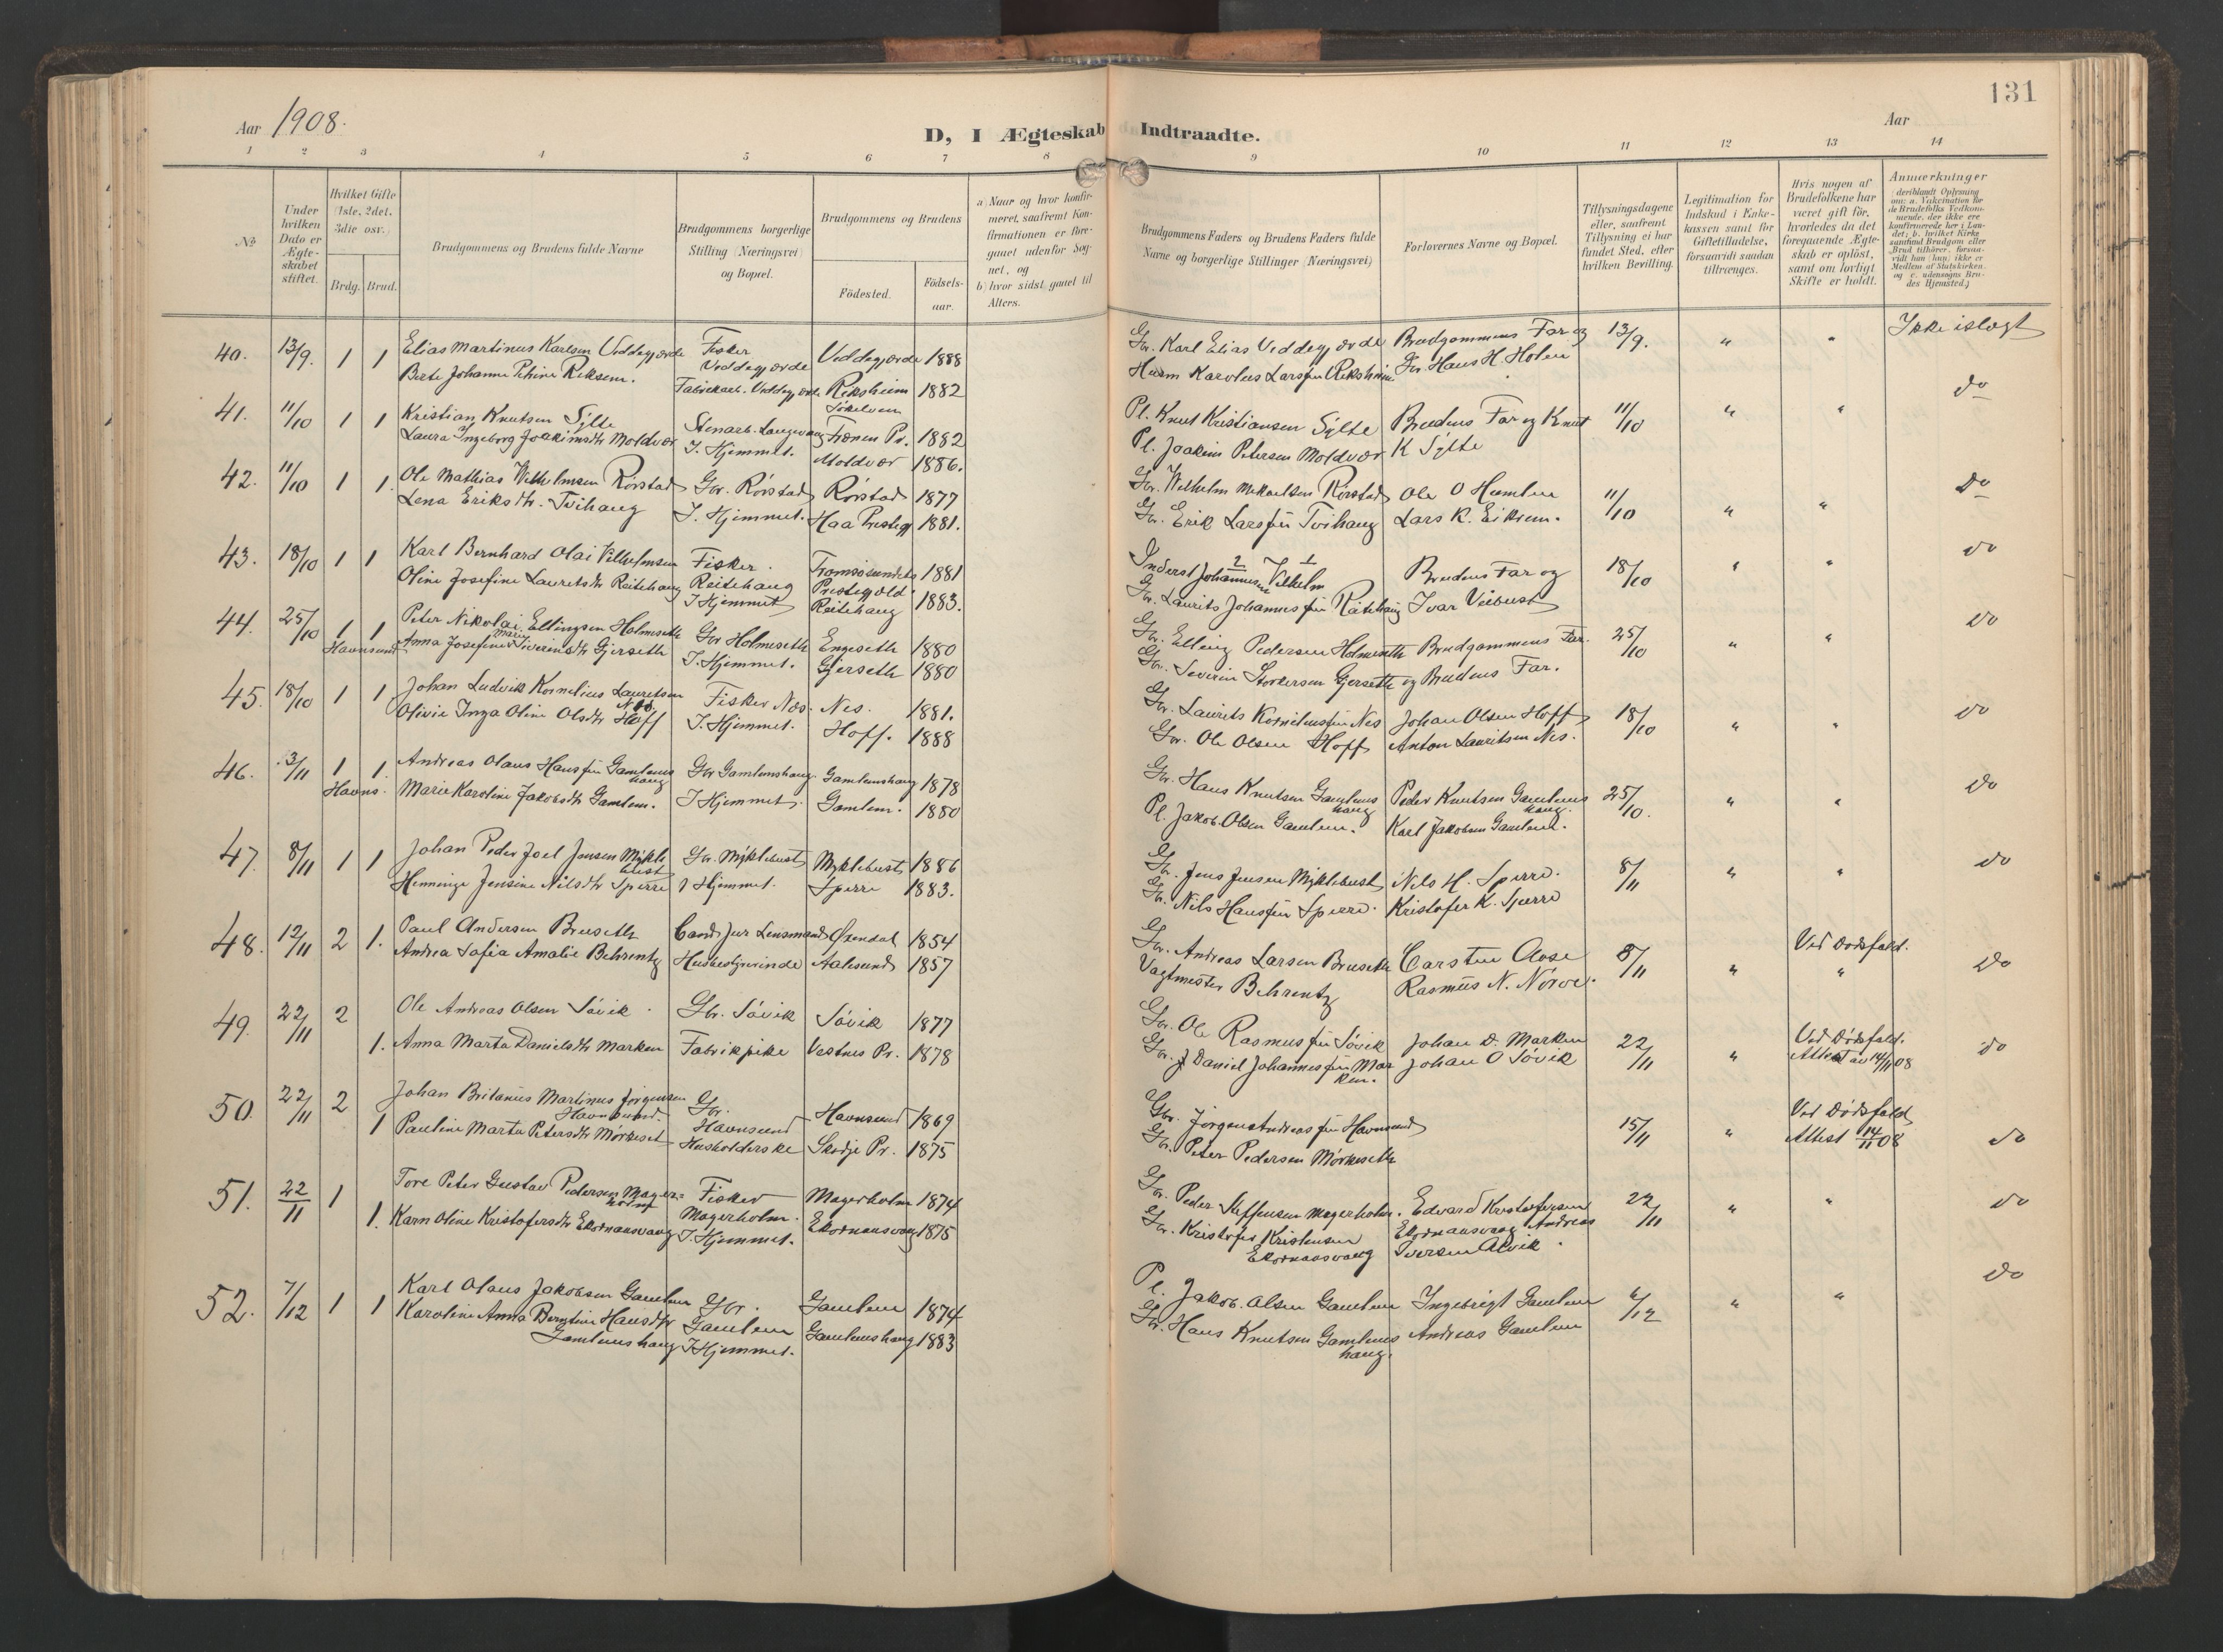 131
Aar 1908.
Aar
D, I Ægteskab Indtraadte.
1 2 3 4 5 6 7 8 9 10 11 12 13 14
No
Under hvilken Dato er Ægteskabet stiftet.
Hvilket Gifte (1ste, 2det, 3die osv.)
Brdg. Brud.
Brudgommens og Brudens fulde Navne
Brudgommens borgerlige Stilling (Næringsvei) og Bopæl.
Brudgommens og Brudens
Fødested.
Fødsels-aar.
a) Naar og hvor konfirmeret, saafremt Konfirmationen er foregaaet udenfor Sognet, og
b) hvor sidst gaaet til Alters.
Brudgommens Faders og Brudens Faders fulde Navne og borgerlige Stillinger (Næringsvei)
Forlovernes Navne og Bopæl.
Tillysningsdagene eller, saafremt Tillysning ei har fundet Sted, efter hvilken Bevilling.
Legitimation for Indskud i Enkekassen samt for Giftetilladelse, forsaavidt saadan tiltrænges.
Hvis nogen af Brudefolkene har været gift før, hvorledes da det foregaaende Ægteskab er opløst, samt om lovligt Skifte er holdt.
Anmærkninger
(deriblandt Oplysning om: a. Vakcination for de Brudefolks Vedkommende, der ikke ere konfirmerede her i Landet; b. hvilket Kirkesamfund Brudgom eller Brud tilhører, forsaavidt han (hun) ikke er Medlem af Statskirken, og c. udensogns Brudes Hjemsted.)
40. 13/9. 1 1 Elias Martinus Karlsen Veddegjærde Fisker Veddegjærde Veddegjærde 1888 Gr. Karl Elias Veddegjærde Brudgommens Far og 13/9. " " Ikke islagt
Berte Johanne Petrine Reksem. Fabrikarb. Veddegjærde Reksheim 1882 Husm Karolus Larsen Reksheim Gr. Hans H. Holen
41. 11/10 1 1 Kristian Knutsen Sylte Stenarb. Langevaag Frænen Pr. 1882 Pl. Knut Kristiansen Sylte Brudens Far og Knut 11/10 " " do
Laura Ingeborg Joakimsdtr Moldvær I. Hjemmet. Moldvær 1886. Pl. Joakim Petersen Moldvær K Sylte
42. 11/10 1 1. Ole Mathias Wilhelmsen Rørstad Gbr. Rørstad Rørstad 1877 Gr. Wilhelm Mikaelsen Rørstad Ole O Hamlen 11/10 " " do
Lena Eriksdtr. Tvihaug I. Hjemmet. Haa Prestegj 1881. Gr. Erik Larsen Tvihaug Lars K. Eikrem.
43. 18/10 1 1 Karl Bernhard Olai Vilhelmsen Fisker. Reitehaug Tromsøsundets Prestegjeld 1881 Inderst Johannesen Vilhelm Brudens Far og 18/10 " " do
Oline Josefine Lauritsdtr Reitehaug I Hjemmet Reitehaug 1883. Gr. Laurits Johannessen Reitehaug Ivar Veibust
44. 25/10 1 1 Peter Nikolai Ellingsen Holmeseth Gbr Holmeseth Engeseth 1880 Gr. Elling Pedersen Holmeseth Brudgommens Far. 25/10 " " do
Havnsund Anna Josefine Marie Severinsdtr Gjerseth I. Hjemmet. Gjerseth 1880 Gr. Severin Storkersen Gjerseth og Brudens Far.
45. 18/10 1 1 Johan Ludvik Kornelius Lauritsen Næs. Fisker Næs. Nes. 1881. Gr. Laurits Korneliussen Nes Johan Olsen Hoff 18/10 " " do
Olivie Inga Oline Olsdtr Hoff I. Hjemmet. Hoff. 1888 Gr. Ole Olsen Hoff Anton Lauritsen Nes.
46. 3/11 1 1. Andreas Olaus Hansen Gamlemshaug Gbr Gamlemshaug. Gamlemshaug 1878 Gr. Hans Knutsen Gamlemshaug Peder Knutsen Gamlemshaug. 25/10. " " do
Havns. Marie Karoline Jakobsdtr Gamlem. I Hjemmet. Gamlem. 1880 Pl. Jakob Olsen Gamlem. Karl Jakobsen Gamlem.
47. 8/11 1 1 Johan Peder Joel Jensen Myklebust Gr. Myklebust Myklebust 1886 Gr. Jens Jensen Myklebust Nils H. Sperre. 8/11 " " do
Henninge Jensine Nilsdtr Sperre I Hjemmet. Sperre 1883. Gr. Nils Hansen Sperre. Kristofer K. Sperre
48. 12/11 2 1. Paul Andersen Bruseth Cand. Jur Lensmand Øxendal 1854 Gr. Andreas Larsen Bruseth Carsten Aose 8/11 " Ved dødsfald. do
Andrea Sofia Amalie Behrentz Husbestyrerinde Aalesund 1857 Vagtmester Behrentz Rasmus N. Nørve. "
49. 22/11 2 Ole Andreas Olsen Søvik. Gbr. Søvik Søvik 1877 Gr. Ole Rasmussen Søvik Johan D. Marken 22/11 " Ved Dødsfald. do
1. Anna Marta Danielsdtr Marken Fabrikpike Vestnes Pr. 1878 Gr. J Daniel Johannessen Marken. Johan O Søvik Attest av 14/11 08
50. 22/11 2 Johan Britanius Martinus Jørgensen Havnsund Gr. Havnsund Havnsund 1869 Gbr. Jørgen Andreassen Havnsund 15/11 " Ved Dødsfald
1 Pauline Marta Petersdtr Mørkeset Husholderske Skodje Pr. 1875 Gr. Peter Pedersen Mørkeseth Attest 14/11 08 do
51. 22/11 1 Tore Peter Gustav Pedersen Magerholm Fisker Magerholm. Magerholm 1874 Gr. Peder Steffensen Magerholm. Edvard Kristofersen 22/11 " " do
1. Karn Oline Kristofersdtr Ekornaasvaag I. Hjemmet. Ekornaasvaag 1875 Gr. Kristofer Kristensen Ekornaasvaag Ekornaasvaag Andreas Iversen Alvik.
52. 7/12 1 1 Karl Olaus Jakobsen Gamlem Gbr. Gamlem Gamlem 1874 Pl. Jakob Olsen Gamlem Ingebrigt Gamlem 6/12 " " do
Karoline Anna Berntine Hansdtr Gamlemshaug I Hjemmet. Gamlemshaug 1883 Gr. Hans Knutsen Gamlemshaug. Andreas Gamlem